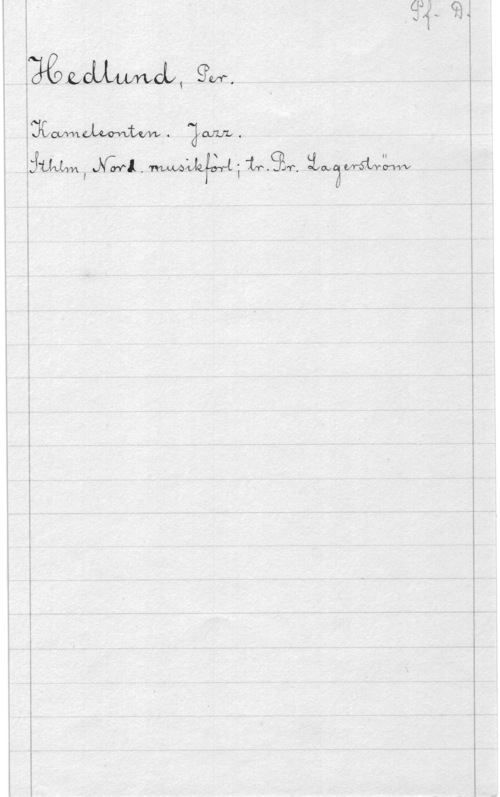 Pf. D.
Hedlund, Per.
Kameleonten. Jazz.
Sthlm, Nord. musikförl; tr. Br. Lagerström